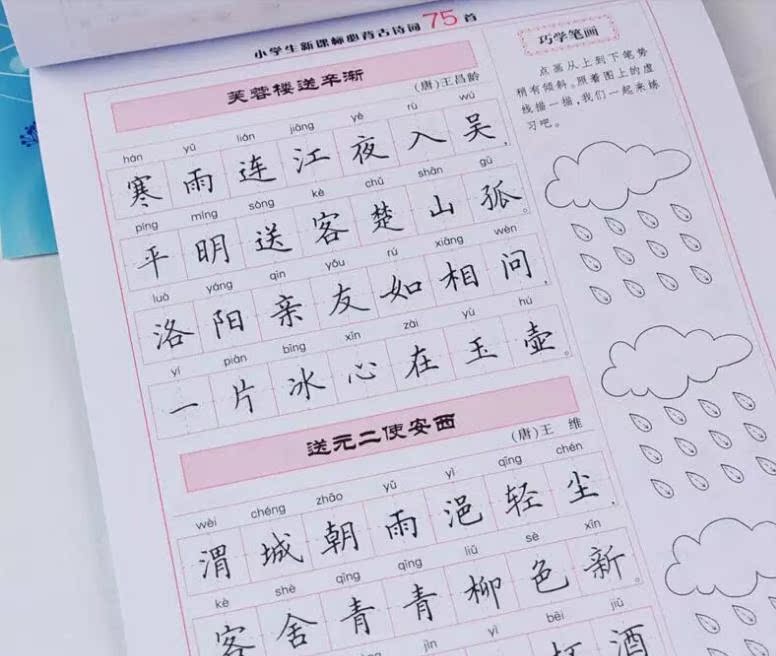 小学生新课标必背古诗词75首
芙蓉楼送辛渐
(唐)王昌龄
hán yǔ lián jiāng yè rù wú
寒雨连江夜入吴，
píng míng sòng kè chǔ shān gū
平明送客楚山孤。
luò yáng qīn yǒu rú xiāng wèn
洛阳亲友如相问，
yí piàn bīng xīn zài yù hú
一片冰心在玉壶。
送元二使安西
(唐)王 维
wèi chéng zhāo yǔ yì qīng chén
渭城朝雨浥轻尘，
kè shè qīng qīng liǔ sè xīn
客舍青青柳色新。
jìn yì bēi jiǔ
酒
巧学笔画
点画从上到下笔势
稍有倾斜。跟着图上的虚
线描一描，我们一起来练
习吧。